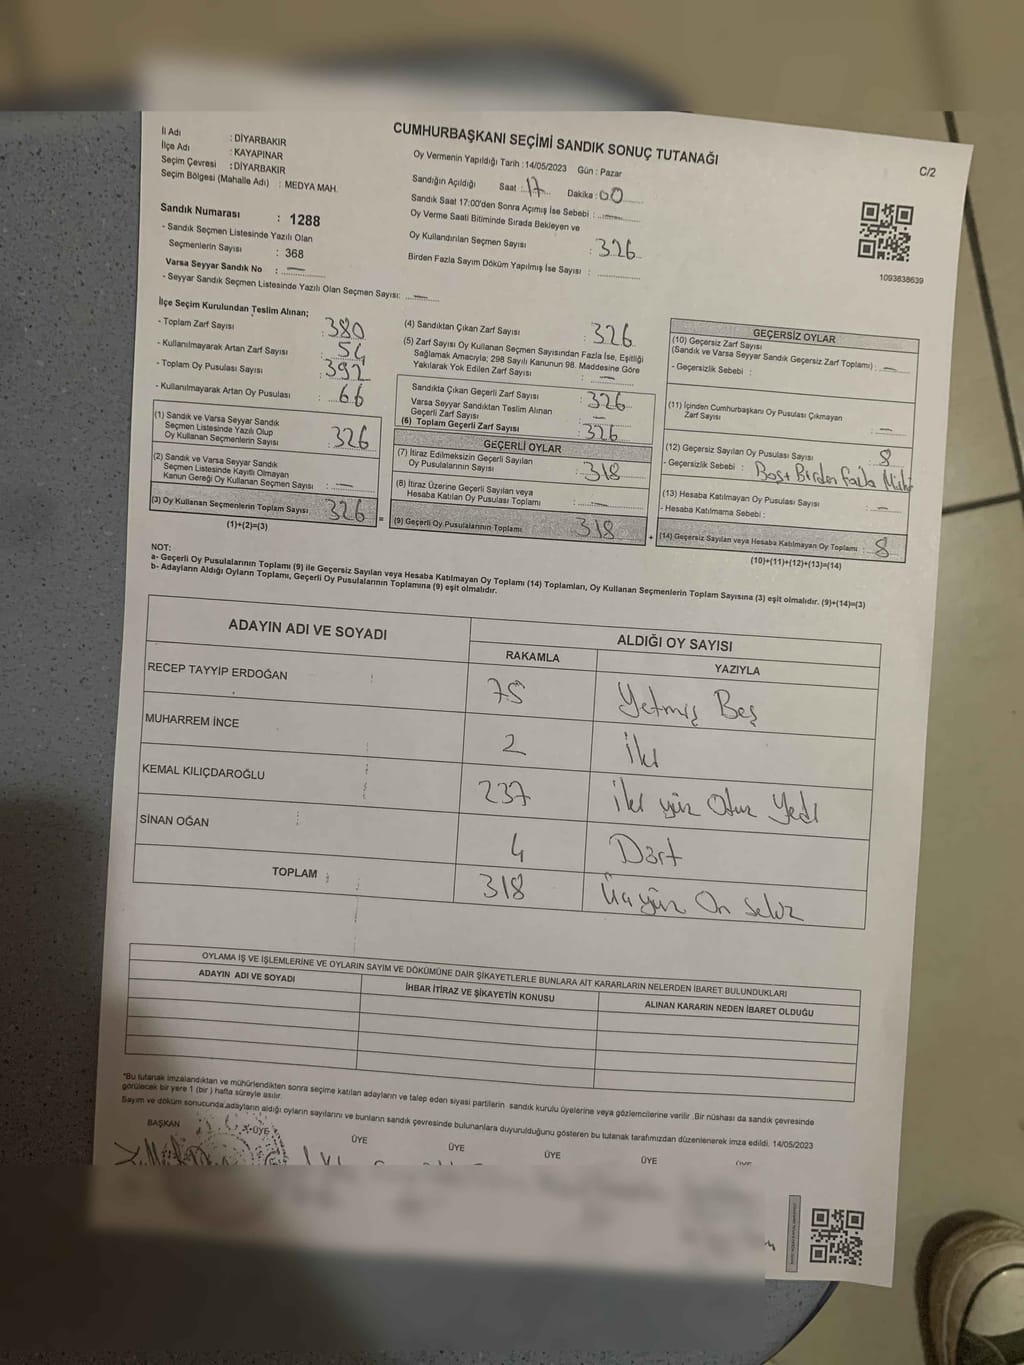 İl Adı : DİYARBAKIR
İlçe Adı : KAYAPINAR
Seçim Çevresi : DİYARBAKIR
Seçim Bölgesi (Mahalle Adı) : MEDYA MAH.
Sandık Numarası : 1288
- Sandık Seçmen Listesinde Yazılı Olan
Seçmenlerin Sayısı : 368
Varsa Seyyar Sandık No : —
- Seyyar Sandık Seçmen Listesinde Yazılı Olan Seçmen Sayısı: —
CUMHURBAŞKANI SEÇİMİ SANDIK SONUÇ TUTANAĞI
C/2
Oy Vermenin Yapıldığı Tarih : 14/05/2023 Gün : Pazar
Sandığın Açıldığı Saat : 17 Dakika : 00
Sandık Saat 17:00'den Sonra Açımış İse Sebebi : —
Oy Verme Saati Bitiminde Sırada Bekleyen ve
Oy Kullandırılan Seçmen Sayısı : 326
Birden Fazla Sayım Döküm Yapılmış İse Sayısı :
1093838639
İlçe Seçim Kurulundan Teslim Alınan;
- Toplam Zarf Sayısı : 380
- Kullanılmayarak Artan Zarf Sayısı : 54
- Toplam Oy Pusulası Sayısı : 392
- Kullanılmayarak Artan Oy Pusulası : 66
(1) Sandık ve Varsa Seyyar Sandık
Seçmen Listesinde Yazılı Olup
Oy Kullanan Seçmenlerin Sayısı : 326
(2) Sandık ve Varsa Seyyar Sandık
Seçmen Listesinde Kayıtlı Olmayan
Kanun Gereği Oy Kullanan Seçmen Sayısı : —
(3) Oy Kullanan Seçmenlerin Toplam Sayısı : 326
(1)+(2)=(3)
=
(4) Sandıktan Çıkan Zarf Sayısı : 326
(5) Zarf Sayısı Oy Kullanan Seçmen Sayısından Fazla İse, Eşitliği
Sağlamak Amacıyla; 298 Sayılı Kanunun 98. Maddesine Göre
Yakılarak Yok Edilen Zarf Sayısı : —
Sandıkta Çıkan Geçerli Zarf Sayısı : 326
Varsa Seyyar Sandıktan Teslim Alınan
Geçerli Zarf Sayısı : —
(6) Toplam Geçerli Zarf Sayısı : 326
GEÇERLİ OYLAR
(7) İtiraz Edilmeksizin Geçerli Sayılan
Oy Pusulalarının Sayısı : 318
(8) İtiraz Üzerine Geçerli Sayılan veya
Hesaba Katılan Oy Pusulası Toplamı : —
(9) Geçerli Oy Pusulalarının Toplamı : 318
+
GEÇERSİZ OYLAR
(10) Geçersiz Zarf Sayısı
(Sandık ve Varsa Seyyar Sandık Geçersiz Zarf Toplamı) : —
- Geçersizlik Sebebi :
(11) İçinden Cumhurbaşkanı Oy Pusulası Çıkmayan
Zarf Sayısı : —
(12) Geçersiz Sayılan Oy Pusulası Sayısı : 8
- Geçersizlik Sebebi : Boş + Birden fazla
(13) Hesaba Katılmayan Oy Pusulası Sayısı : —
- Hesaba Katılmama Sebebi :
(14) Geçersiz Sayılan veya Hesaba Katılmayan Oy Toplamı : 8
(10)+(11)+(12)+(13)=(14)
NOT:
a- Geçerli Oy Pusulalarının Toplamı (9) ile Geçersiz Sayılan veya Hesaba Katılmayan Oy Toplamı (14) Toplamları, Oy Kullanan Seçmenlerin Toplam Sayısına (3) eşit olmalıdır. (9)+(14)=(3)
b- Adayların Aldığı Oyların Toplamı, Geçerli Oy Pusulalarının Toplamına (9) eşit olmalıdır.
ADAYIN ADI VE SOYADI
ALDIĞI OY SAYISI
RAKAMLA YAZIYLA
RECEP TAYYİP ERDOĞAN 75 Yetmiş Beş
MUHARREM İNCE 2 İki
KEMAL KILIÇDAROĞLU 237 İki yüz Otuz Yedi
SİNAN OĞAN 4 Dört
TOPLAM 318 Üç yüz On Sekiz
OYLAMA İŞ VE İŞLEMLERİNE VE OYLARIN SAYIM VE DÖKÜMÜNE DAİR ŞİKAYETLERLE BUNLARA AİT KARARLARIN NELERDEN İBARET BULUNDUKLARI
ADAYIN ADI VE SOYADI İHBAR İTİRAZ VE ŞİKAYETİN KONUSU ALINAN KARARIN NEDEN İBARET OLDUĞU
*Bu tutanak imzalandıktan ve mühürlendikten sonra seçime katılan adayların ve talep eden siyasi partilerin sandık kurulu üyelerine veya gözlemcilerine verilir .Bir nüshası da sandık çevresinde
görülecek bir yere 1 (bir ) hafta süreyle asılır.
Sayım ve döküm sonucunda,adayların aldığı oyların sayılarını ve bunların sandık çevresinde bulunanlara duyurulduğunu gösteren bu tutanak tarafımızdan düzenlenerek imza edildi. 14/05/2023
BAŞKAN ÜYE ÜYE ÜYE ÜYE ÜYE ÜYE